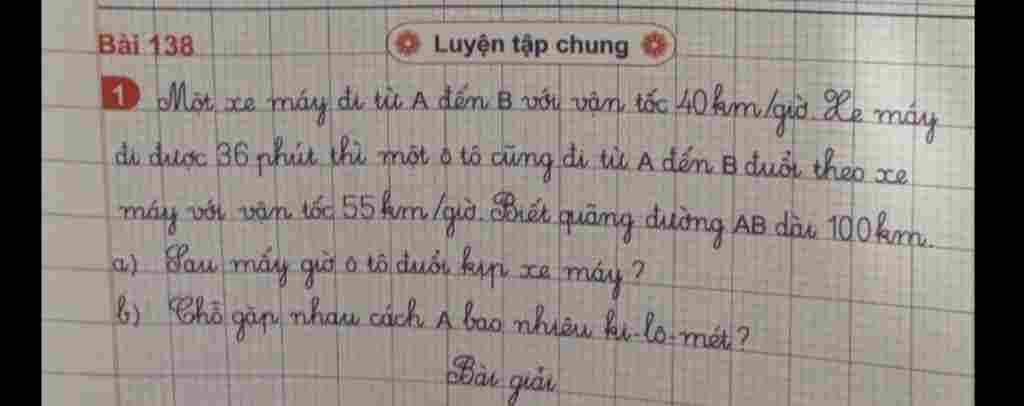 Bài 138
Luyện tập chung
1 Một xe máy đi từ A đến B với vận tốc 40km/giờ. Xe máy
đi được 36 phút thì một ô tô cũng đi từ A đến B đuổi theo xe
máy với vận tốc 55km/giờ. Biết quãng đường AB dài 100km.
a) Sau mấy giờ ô tô đuổi kịp xe máy?
b) Chỗ gặp nhau cách A bao nhiêu ki-lô-mét?
Bài giải